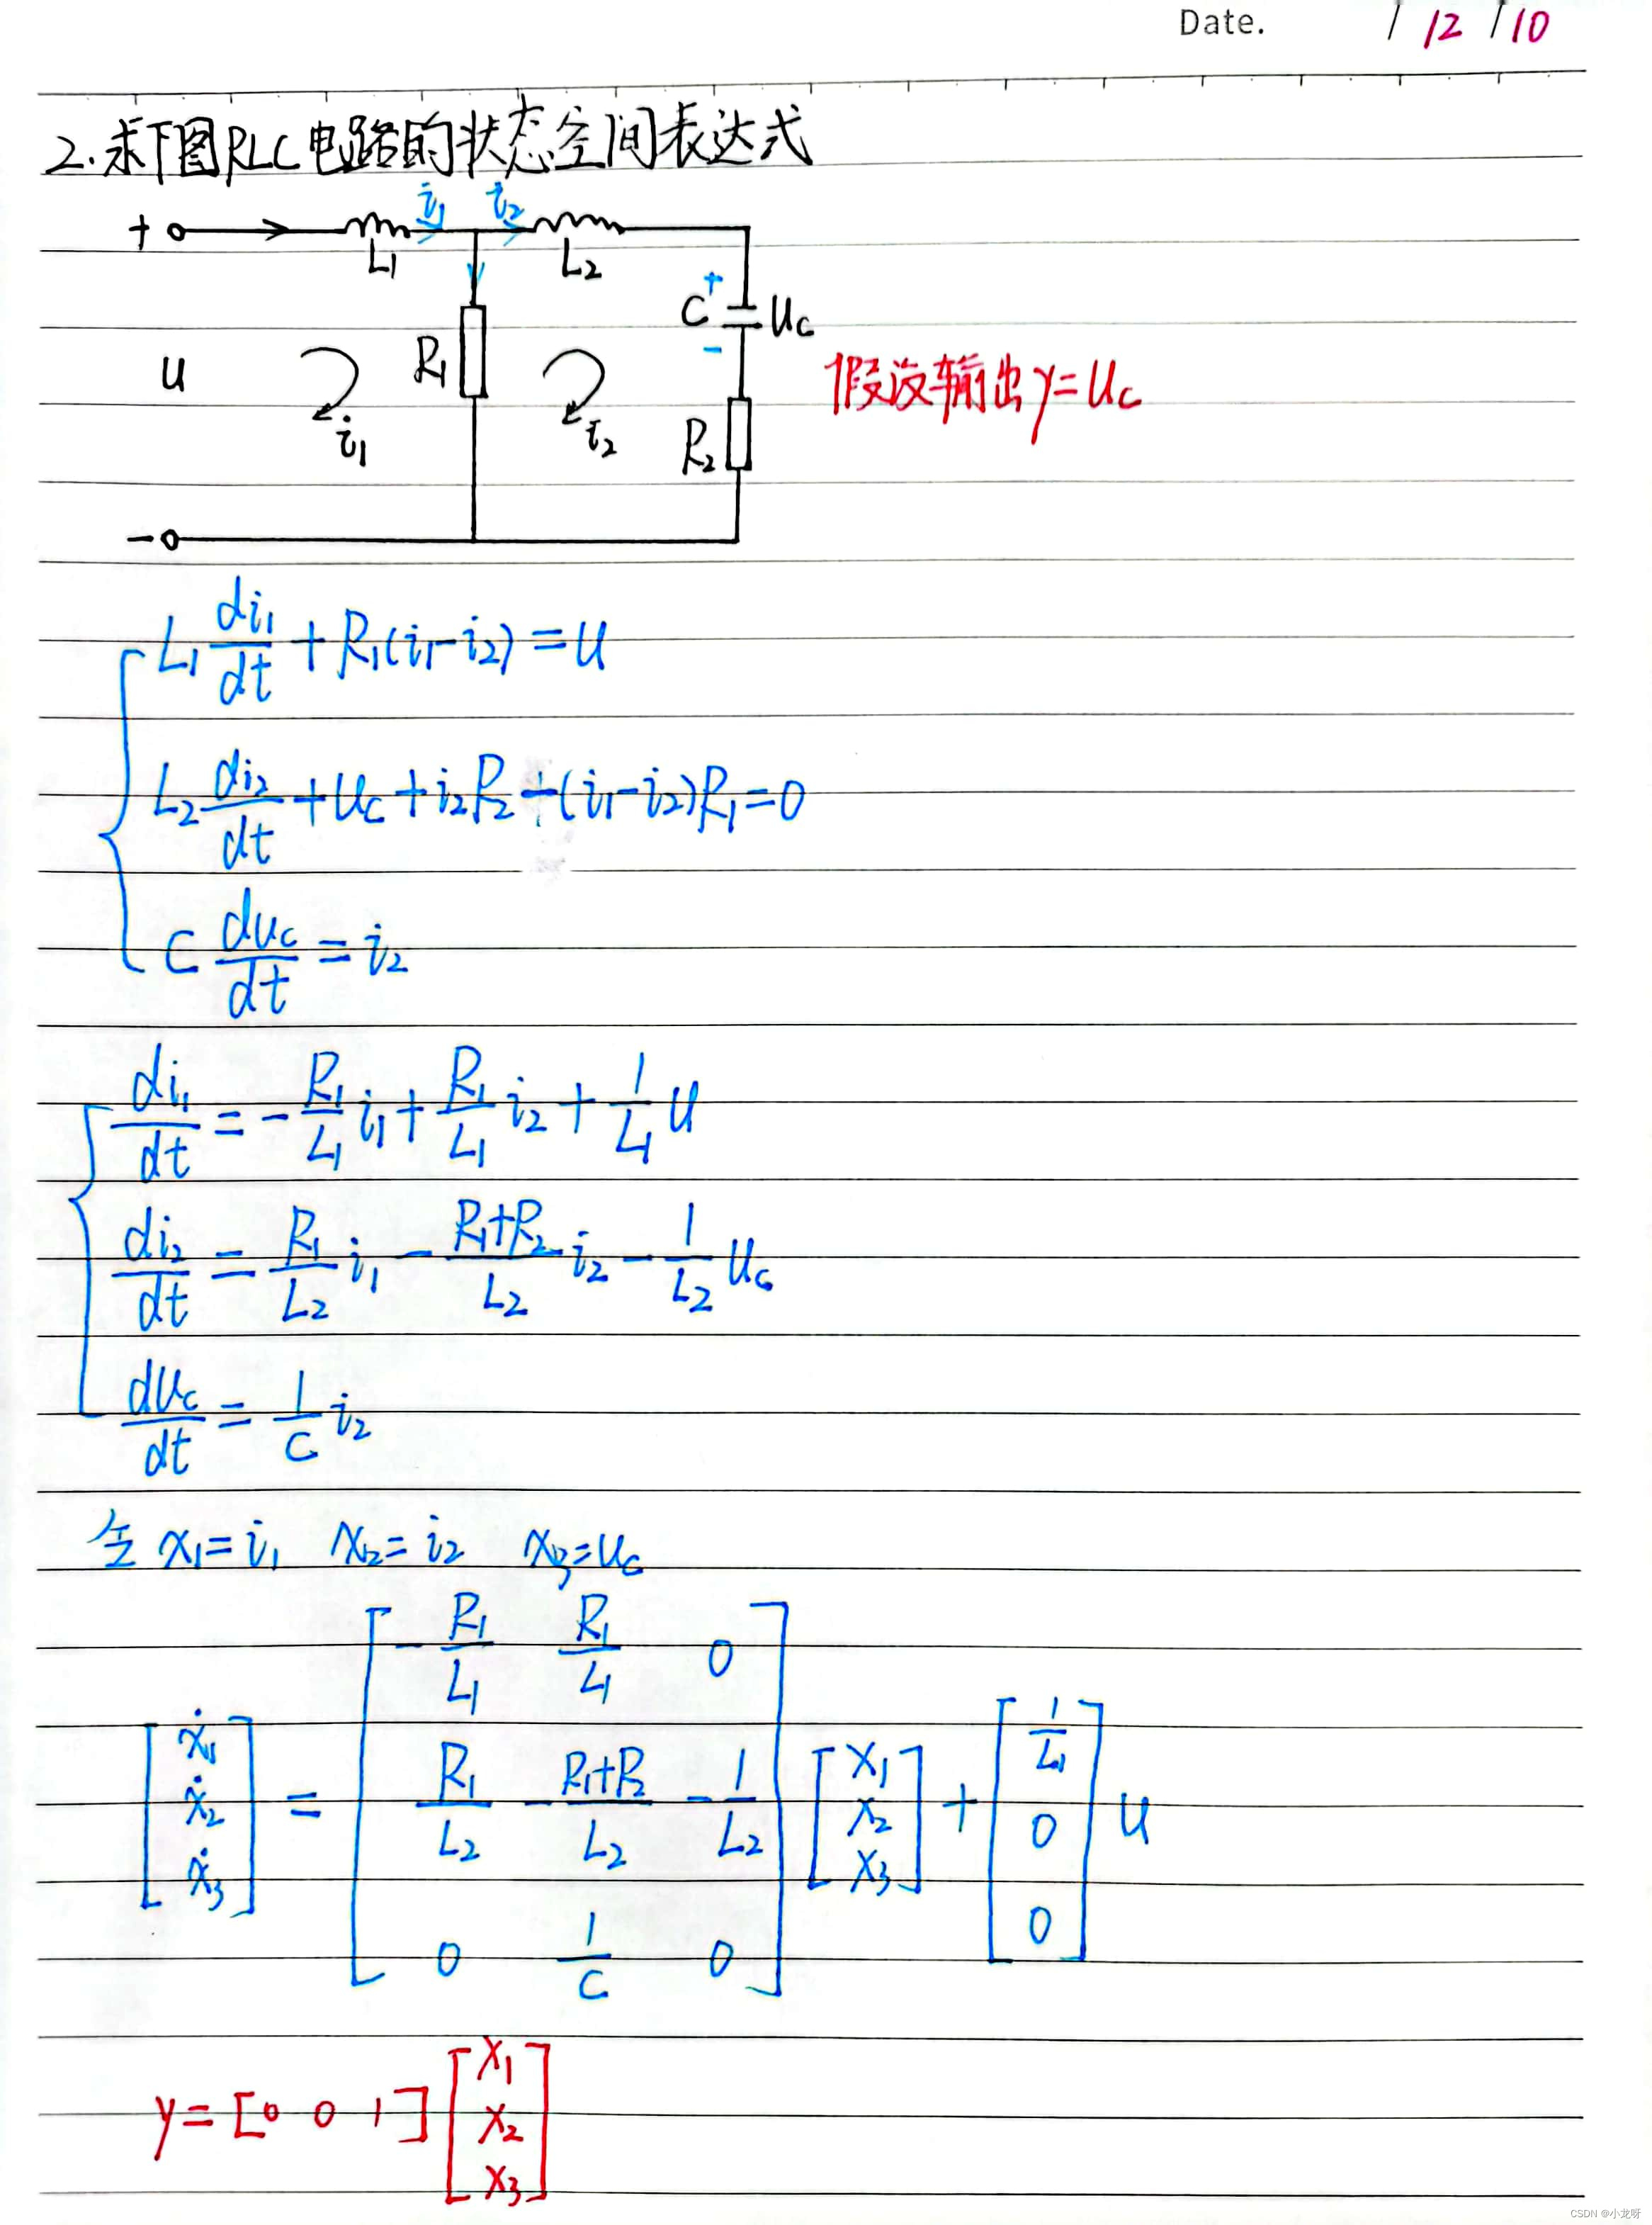 Date. / 12 / 10
2.求下图RLC电路的状态空间表达式
i₁ i₂
+ L₁ L₂
+
C U_C
R₁ −
u 假设输出y=U_C
i₁ i₂ R₂
−
L₁ di₁/dt + R₁(i₁-i₂) = u
L₂ di₂/dt + U_C + i₂R₂ -(i₁-i₂)R₁=0
C du_c/dt = i₂
di₁/dt = - R₁/L₁ i₁ + R₁/L₁ i₂ + 1/L₁ u
di₂/dt = R₁/L₂ i₁ - (R₁+R₂)/L₂ i₂ - 1/L₂ U_C
du_c/dt = 1/C i₂
令 x₁=i₁ x₂=i₂ x₃=u_c
[ẋ₁ ẋ₂ ẋ₃] = [-R₁/L₁ R₁/L₁ 0; R₁/L₂ -(R₁+R₂)/L₂ -1/L₂; 0 1/C 0] [x₁ x₂ x₃] + [1/L₁ 0 0] u
y = [0 0 1] [x₁ x₂ x₃]
CSDN @小龙呀